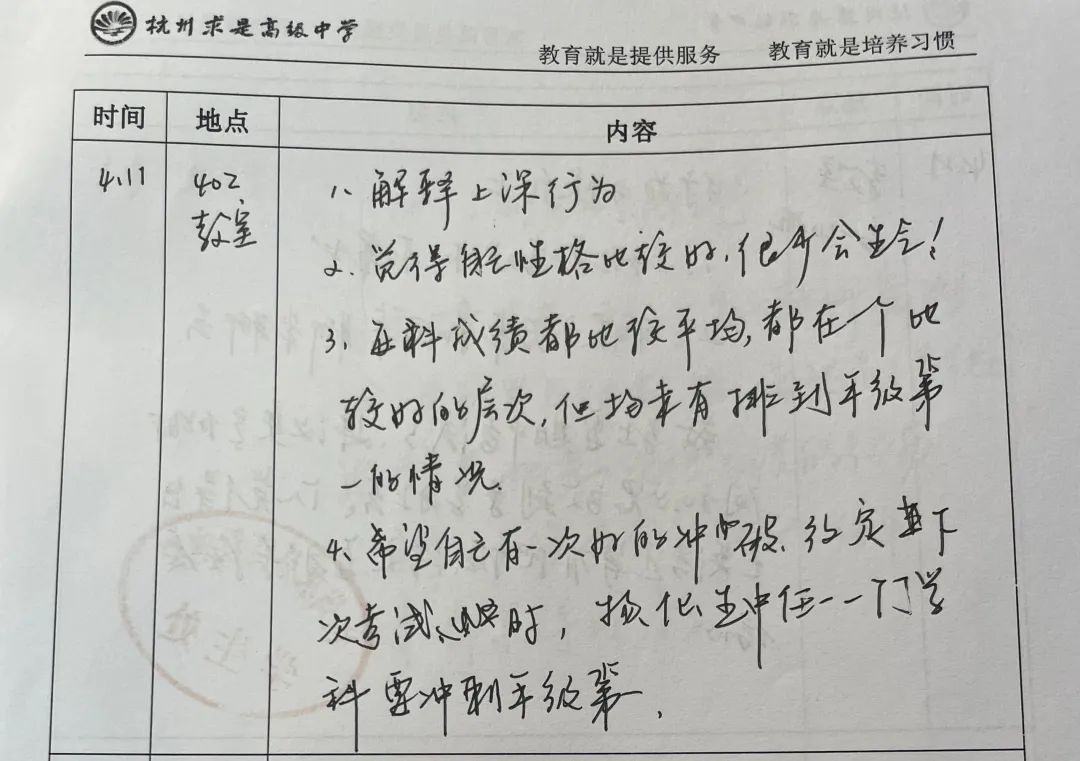 杭州求是高级中学
教育就是提供服务 教育就是培养习惯
时间 地点 内容
4.11 402 1. 解释上深行为
教室
2. 觉得自己性格比较好,很少会生气!
3. 各科成绩都比较平均,都在一个比
较好的层次,但均未有排到年级第
一的情况.
4. 希望自己有一次好的冲破.约定某下
次考试 时, 物化生中任一一门学
科要冲刺年级第一.